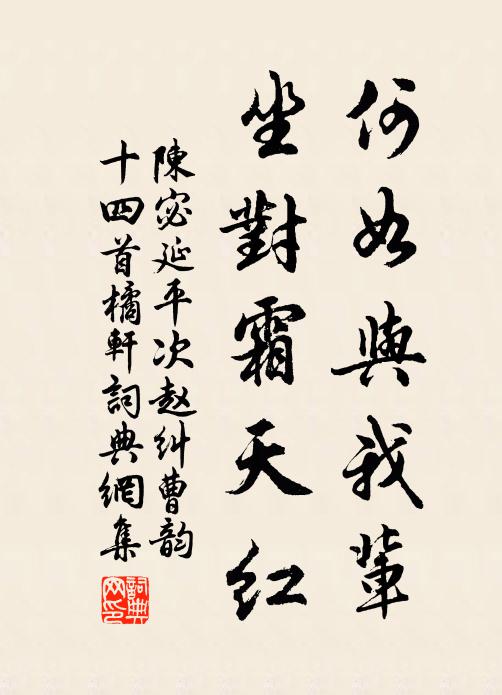 何如與我輩
坐對霜天紅
陳宓延平次赵糾曹韵
十四首橘軒詞典網集
詞典网印